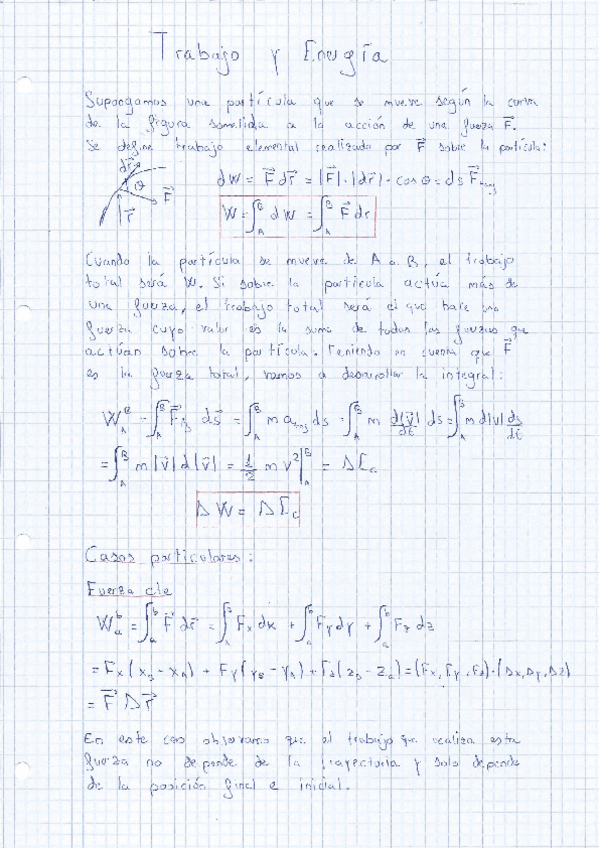 Trabajo y Energía
Supongamos una partícula que se mueve según la curva
de la figura sometida a la acción de una fuerza F⃗.
Se define trabajo elemental realizado por F⃗ sobre la partícula:
dr⃗ θ F⃗ r⃗
dW = F⃗ dr⃗ = |F⃗|·|dr⃗|·cos θ = ds F⃗tng
W = ∫_A^B dW = ∫_A^B F⃗ dr
Cuando la partícula se mueve de A a B, el trabajo
total será W. Si sobre la partícula actúa más de
una fuerza, el trabajo total será el que hace una
fuerza cuyo valor es la suma de todas las fuerzas que
actúan sobre la partícula. Teniendo en cuenta que F⃗
es la fuerza total, vamos a desarrollar la integral:
W_A^B = ∫_A^B F⃗tng ds⃗ = ∫_A^B m atng ds = ∫_A^B m d|v⃗|/dt ds = ∫_A^B m d|v| ds/dt
= ∫_A^B m |v⃗| d|v⃗| = 1/2 m v²|_A^B = ΔEc
ΔW = ΔEc
Casos particulares:
Fuerza cte
W_a^b = ∫_a^b F⃗ dr⃗ = ∫_a^b Fx dx + ∫_a^b Fy dy + ∫_a^b Fz dz
= Fx (xB - xA) + Fy (yB - yA) + Fz (zB - zA) = (Fx, Fy, Fz)·(Δx, Δy, Δz)
= F⃗ Δr⃗
En este caso observamos que el trabajo que realiza esta
fuerza no depende de la trayectoria y solo depende
de la posición final e inicial.